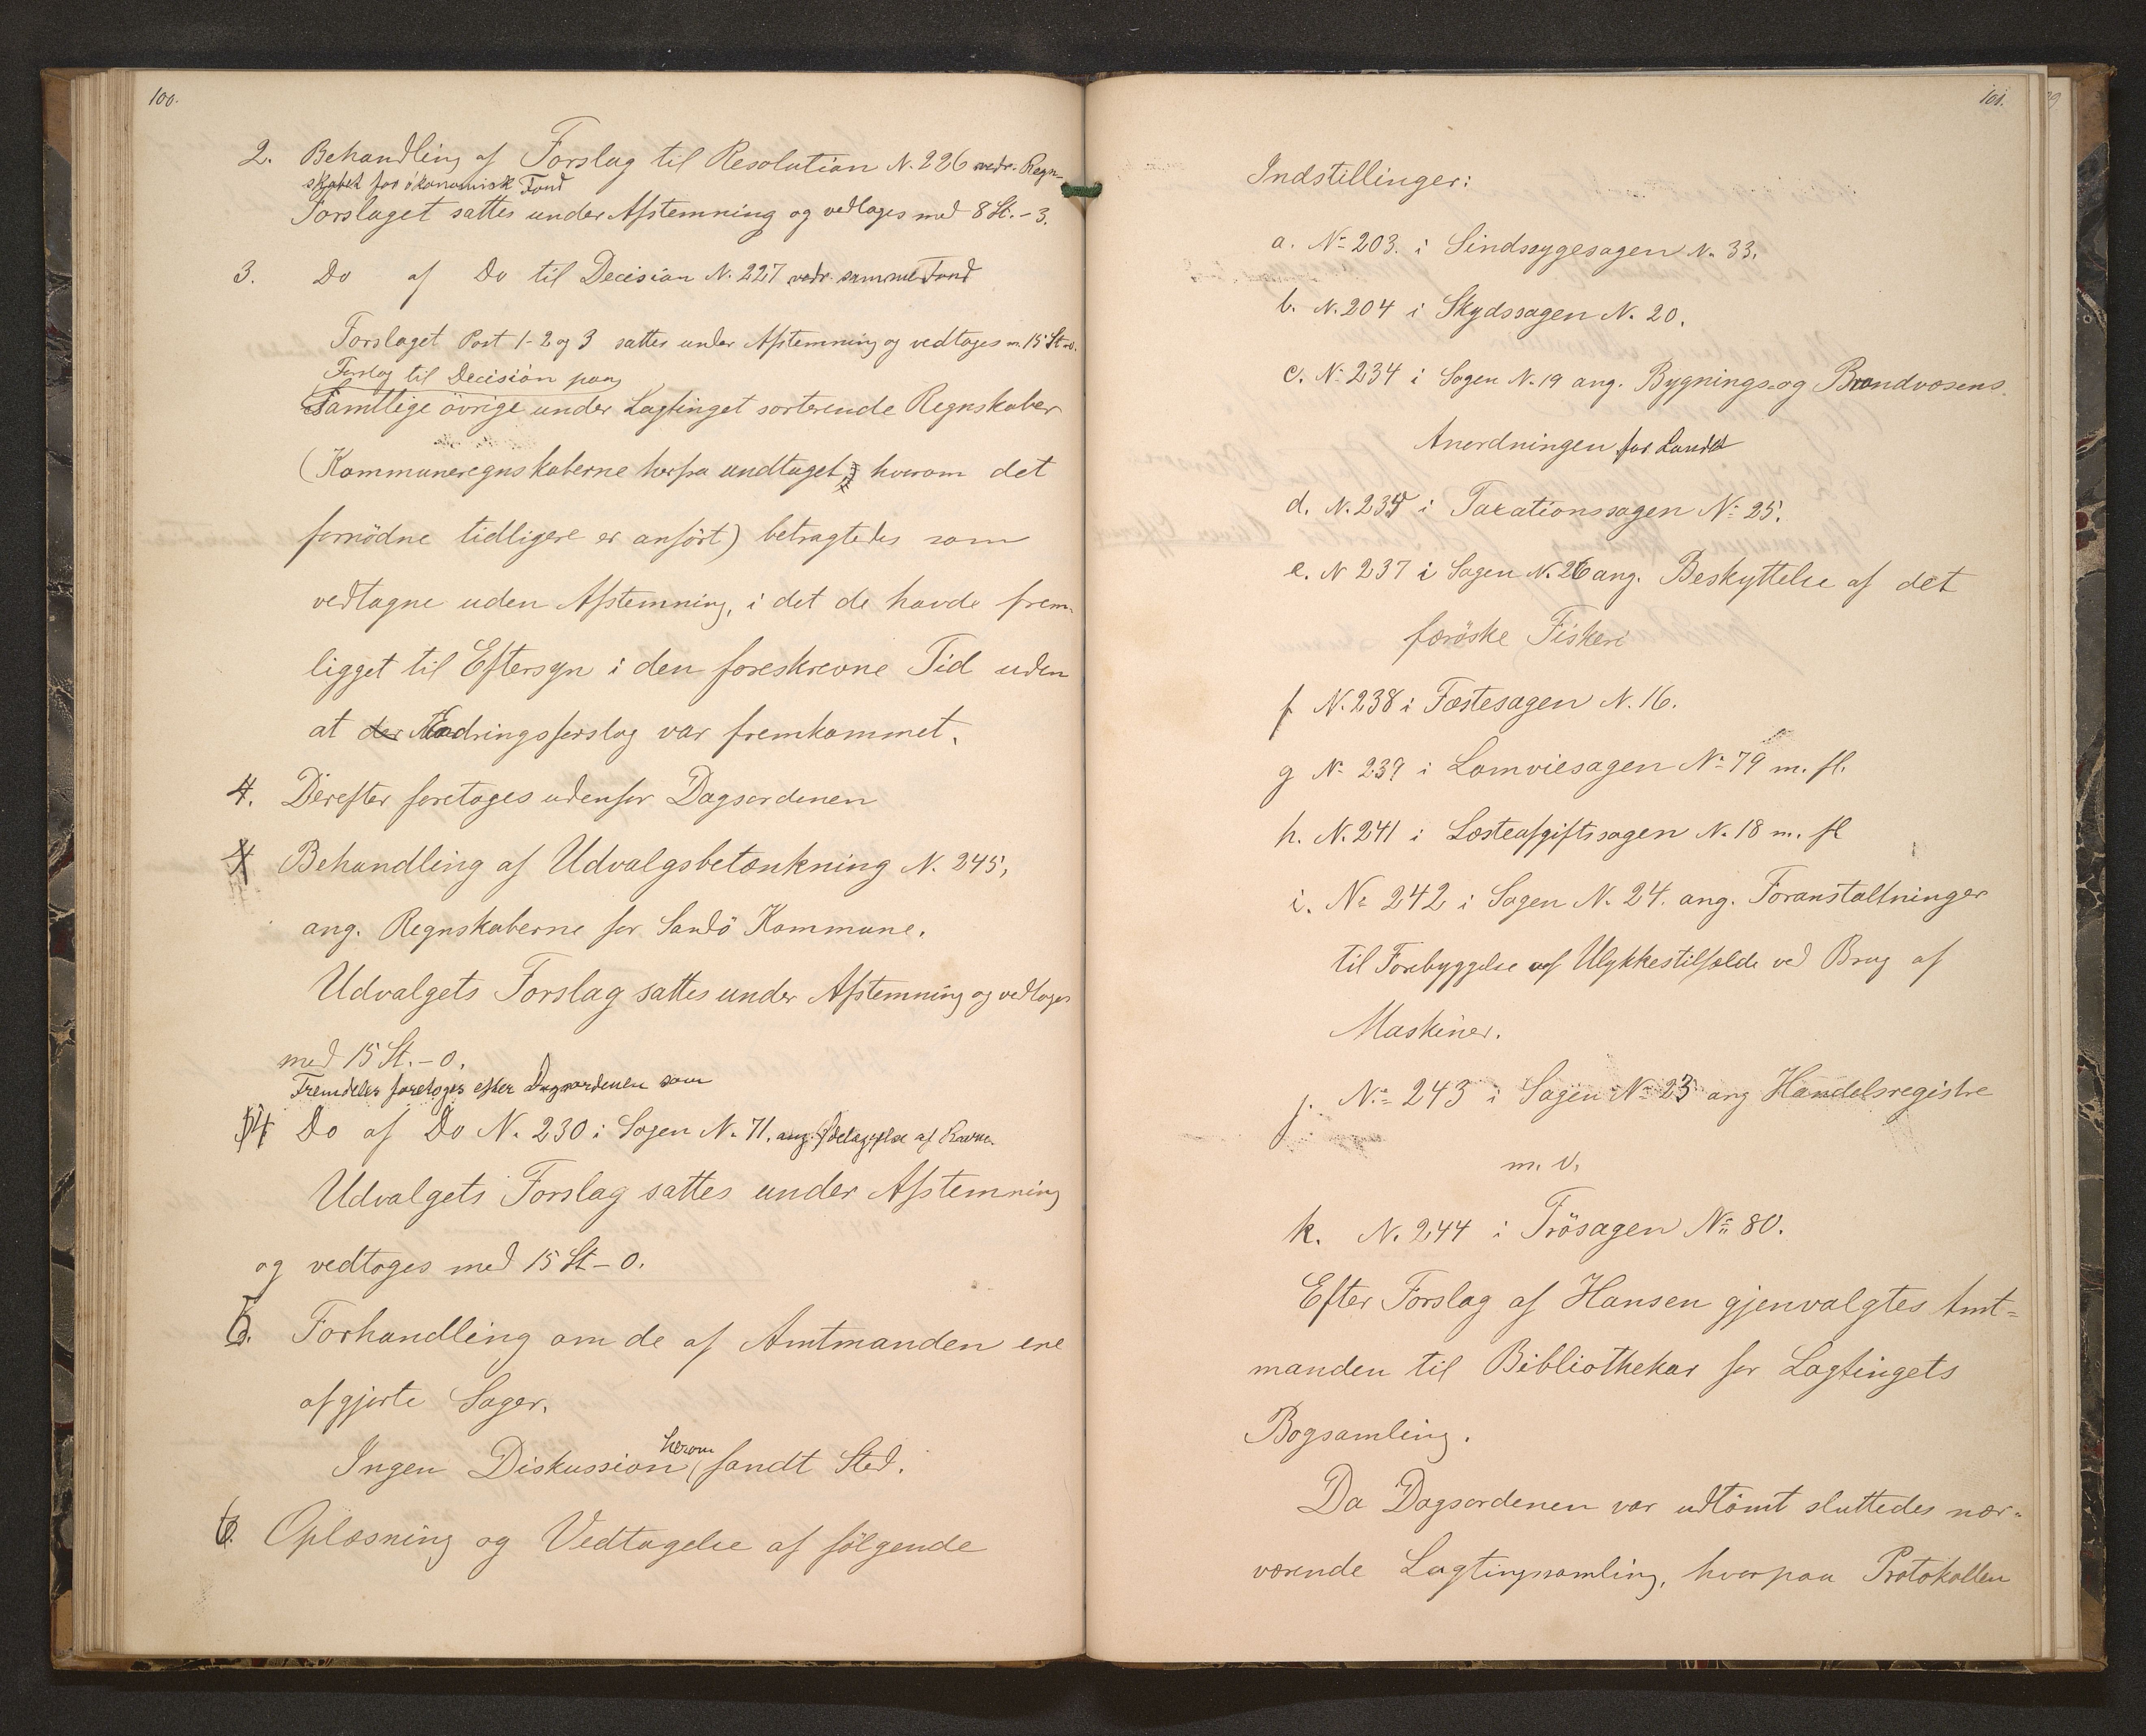 100.
2. Behandling af Forslag til Resolution N. 226 vedr. Regn-
skabet for økonomisk Fond
Forslaget sattes under Afstemning og vedtoges med 8 St. - 3.
3. Do af Do til Decision N. 227 vedr. samme Fond
Forslaget Post 1-2 og 3 sattes under Afstemning og vedtoges m. 15 St-0.
Forslag til Decision paa
Samtlige övrige under Lagtinget sorterende Regnskaber
(Kommuneregnskaberne herfra undtaget, hvorom det
fornödne tidligere er anfört) betragtedes som
vedtagne uden Afstemning, i det de havde frem-
ligget til Eftersyn i den foreskrevne Tid uden
at der Ændringsforslag var fremkommet.
4. Derefter foretoges udenfor Dagsordenen
Behandling af Udvalgsbetænkning N. 245,
ang. Regnskaberne for Sandö Kommune.
Udvalgets Forslag sattes under Afstemning og vedtoges
med 15 St. - 0.
Fremdeles foretoges efter Dagsordenen som
4 Do af Do N. 230 i Sagen N. 71. ang. Ödelæggelse af Ravne.
Udvalgets Forslag sattes under Afstemning
og vedtoges med 15 St - 0.
5. Forhandling om de af Amtmanden ene
afgjorte Sager.
Ingen Diskussion herom fandt Sted.
6. Oplæsning og Vedtagelse af fölgende
101.
Indstillinger:
a. No 203. i Sindssygesagen N. 33.
b. N. 204 i Skydssagen N. 20.
c. N. 234 i Sagen N. 19 ang. Bygnings- og Brandvæsens
Anordningen for Landet
d. N. 235 i Taxationssagen No 25.
e. N 237 i Sagen N. 26 ang. Beskyttelse af det
færöske Fiskeri
f N. 238 i Fæstesagen N. 16.
g No 239 i Lomviesagen No 79 m. fl.
h. N. 241 i Læsteafgiftssagen N. 18 m. fl
i. No 242 i Sagen N. 24. ang. Foranstaltninger
til Forebyggelse af Ulykkestilfælde ved Brug af
Maskiner.
j. No 243 i Sagen No 23 ang Handelsregistre
m. v.
k. N. 244 i Frösagen No 80.
Efter Forslag af Hansen gjenvalgtes Amt=
manden til Bibliothekar for Lagtingets
Bogsamling.
Da Dagsordenen var udtömt sluttedes nær-
værende Lagtingssamling, hvorpaa Protokollen